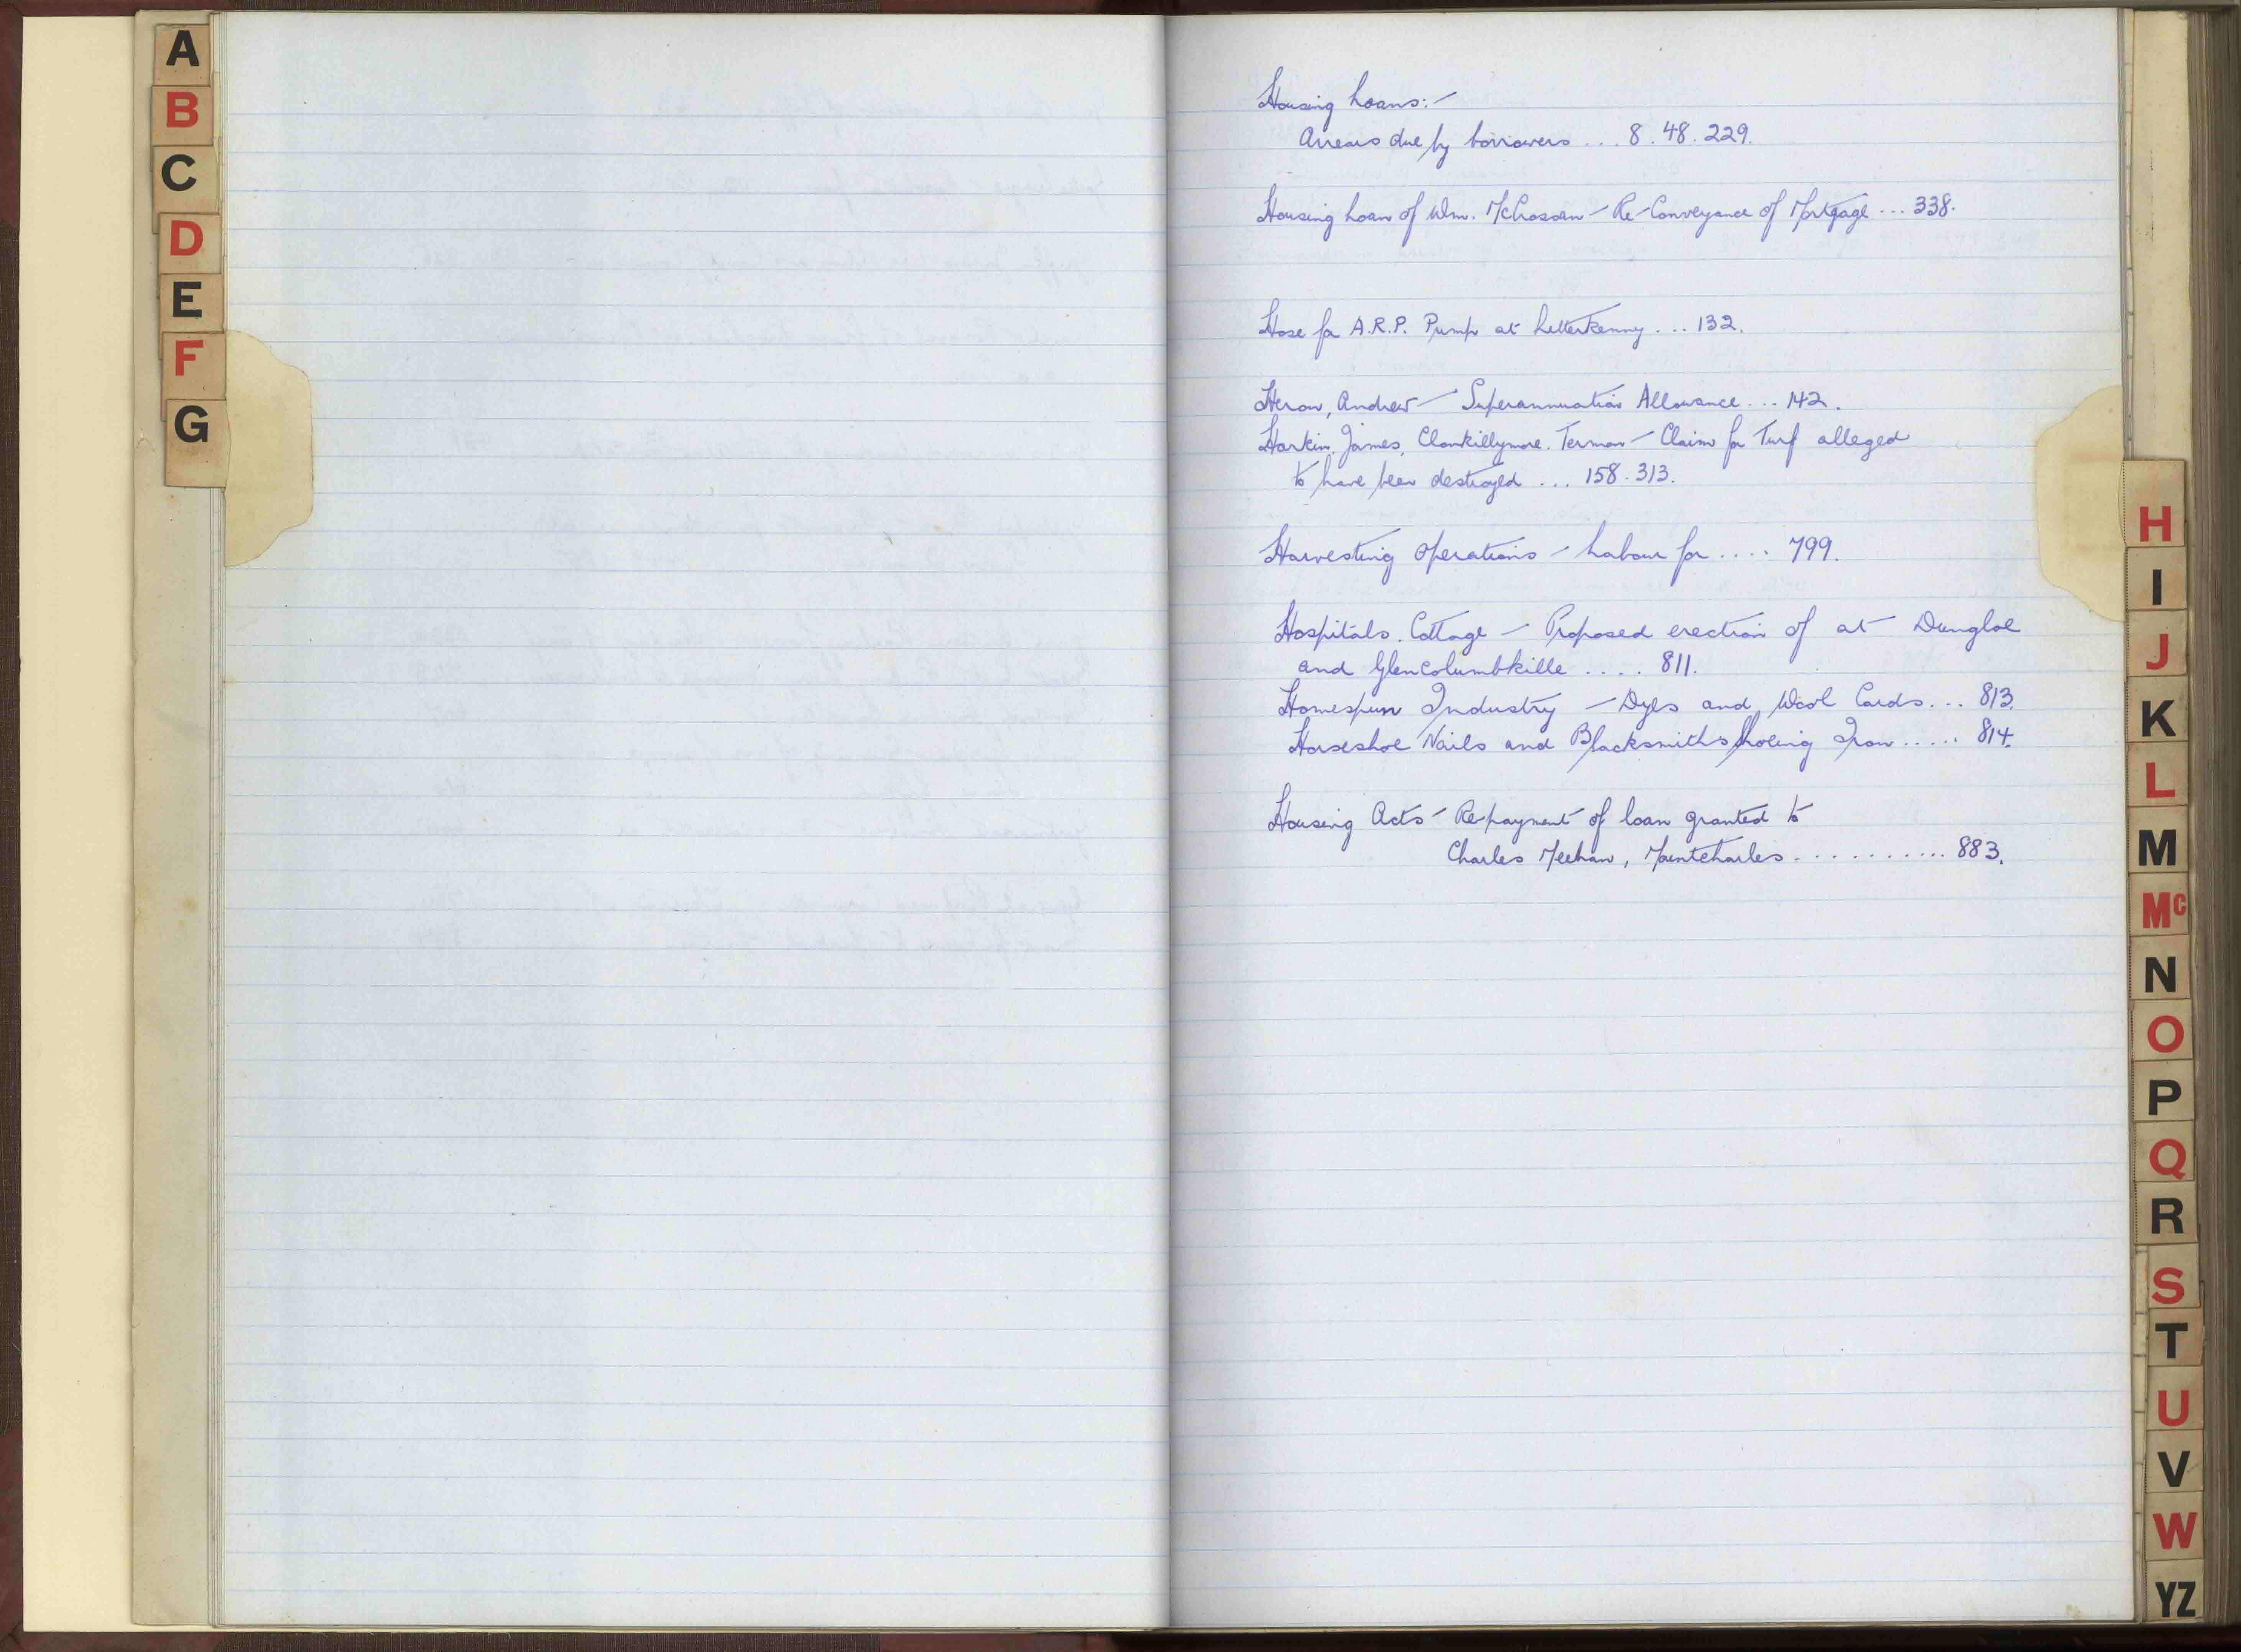 A
B
C
D
E
F
G
Housing Loans:-
Arrears due by borrowers ... 8. 48. 229.
Housing Loan of Wm. McCrossan - Re-Conveyance of Mortgage ... 338.
Hose for A.R.P. Pump at Letterkenny ... 132.
Heron, Andrew - Superannuation Allowance ... 142.
Harkin, James, Clonkillymore. Termon - Claim for Turf alleged
to have been destroyed ... 158. 313.
Harvesting Operations - Labour for .... 799.
Hospitals. Cottage - Proposed erection of at Dungloe
and Glencolumbkille .... 811.
Homespun Industry - Dyes and Wool Cards ... 813.
Horseshoe Nails and Blacksmiths Shoeing Iron ..... 814.
Housing Acts - Re-payment of loan granted to
Charles Meehan, Mountcharles ........... 883.
H
I
J
K
L
M
Mc
N
O
P
Q
R
S
T
U
V
W
YZ